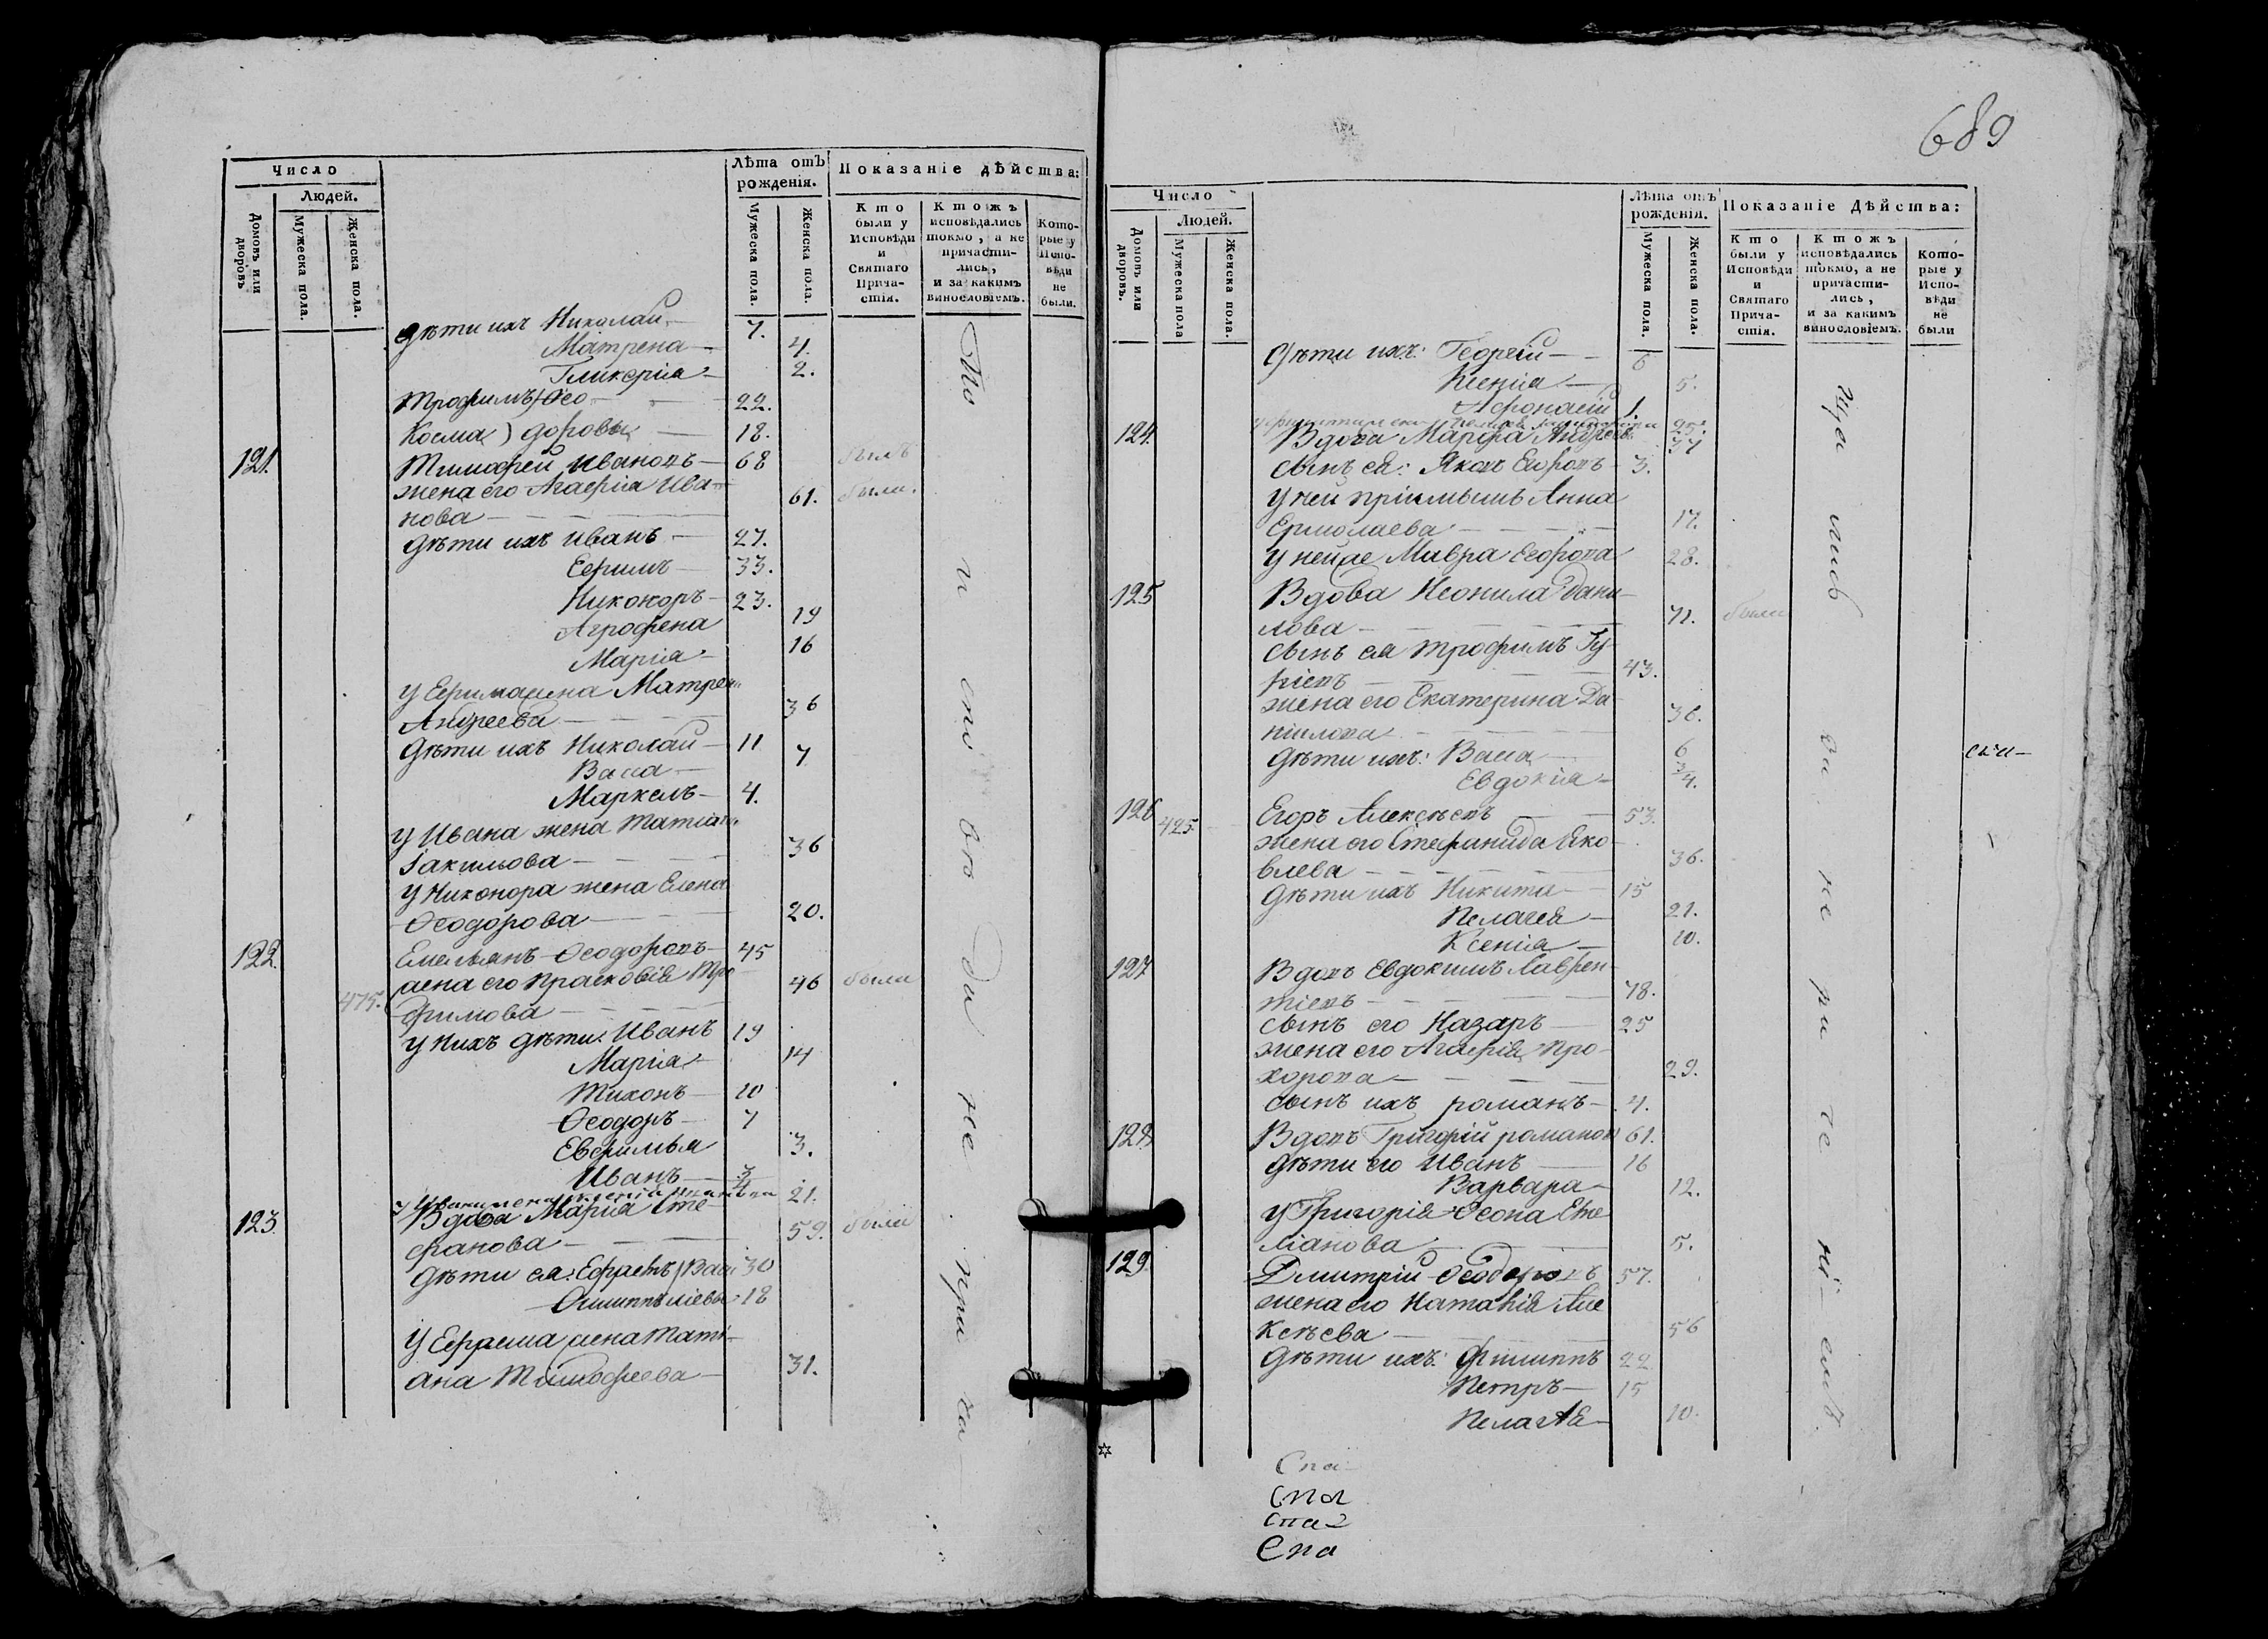 Число
Людей.
Домовъ или дворовъ
Мужеска пола.
Женска пола.
Лѣта отъ рожденія.
Мужеска пола.
Женска пола.
Показаніе дѣйства:
Кто были у Исповѣди и Святаго Прича-стія.
Ктожъ исповѣдались токмо, а не причасти-лись, и за какимъ винословіемъ.
Кото-рые у Испо-вѣди не были.
дѣти ихъ Николай 7.
Матрена 4.
Гликеріа 2.
Трофимъ) Ѳео 22.
Косма) доровы 18.
121. Тимофей Ивановъ 68 былъ
жена его Агафіа Ива-
нова 61. была.
дѣти ихъ Иванъ 27.
Ефимъ 33.
Никоноръ 23.
Агрофена 19
Маріа 16
у Ефима жена Матрен
Андреева 36
дѣти ихъ Николай 11
Васса 7
Маркелъ 4.
у Ивана жена Татиан
Іакимова 36
у Никонора жена Елена
Ѳеодорова 20.
122. Емельянъ Ѳеодоровъ 45
жена его Прасковія Тро
475. фимова 46 была
у нихъ дѣти: Иванъ 19
Маріа 14
Тихонъ 10
Ѳеодоръ 7
Евфимья 3.
Иванъ 3/4
у Ивана жена 21.
123. Вдова Маріа Сте-
фанова 59. была
дѣти ея: Ефремъ) Васи 30
Филиппъ ліевы 18
у Ефрема жена Тати-
ана Тимофеева 31.
То и споводи не при ча
689
Число
Людей.
Домовъ или дворовъ.
Мужеска пола
Женска пола.
Лѣта отъ рожденія.
Мужеска пола.
Женска пола.
Показаніе Дѣйства:
Кто были у Исповѣди и Святаго Прича-стія.
Ктожъ исповѣдались токмо, а не причасти-лись, и за какимъ винословіемъ.
Кото-рые у Испо-вѣди не были
дѣти ихъ: Георгій 6
Ксеніа 5.
Афонасій 1.
25.
124. Вдова Марфа Андреев 37
сынъ ея: Яковъ Егоровъ 3.
у ней пріимышъ Анна
Ермолаева 17.
у ней же Мавра Егорова 28.
125 Вдова Неонила Дани-
лова 71. была
сынъ ея Трофимъ Гу-
ріевъ 43.
жена его Екатерина Да
нілова 38.
дѣти ихъ: Васса 6
Евдокіа 3/4.
126 Егоръ Алексѣевъ 53.
425.
жена его Стефанида Яко-
влева 36.
дѣти ихъ Никита 15
Пелагея 21.
Ксеніа 10.
127 Вдовъ Евдокимъ Лаврен-
тіевъ 78.
сынъ его Назаръ 25
жена его Агафія Про-
хорова 29.
сынъ ихъ романъ 4.
128 Вдовъ Григорій романов 61.
дѣти его Иванъ 16
Варвара 12.
у Григорія Ѳеона Еме
ліанова 5.
129. Дмитрій Ѳеодоровъ 57.
жена его Наталія Але
ксѣева 56
дѣти ихъ: Филиппъ 22
Петръ 15
Пелагѣя 10.
Спа
Спа
Спа
Спа